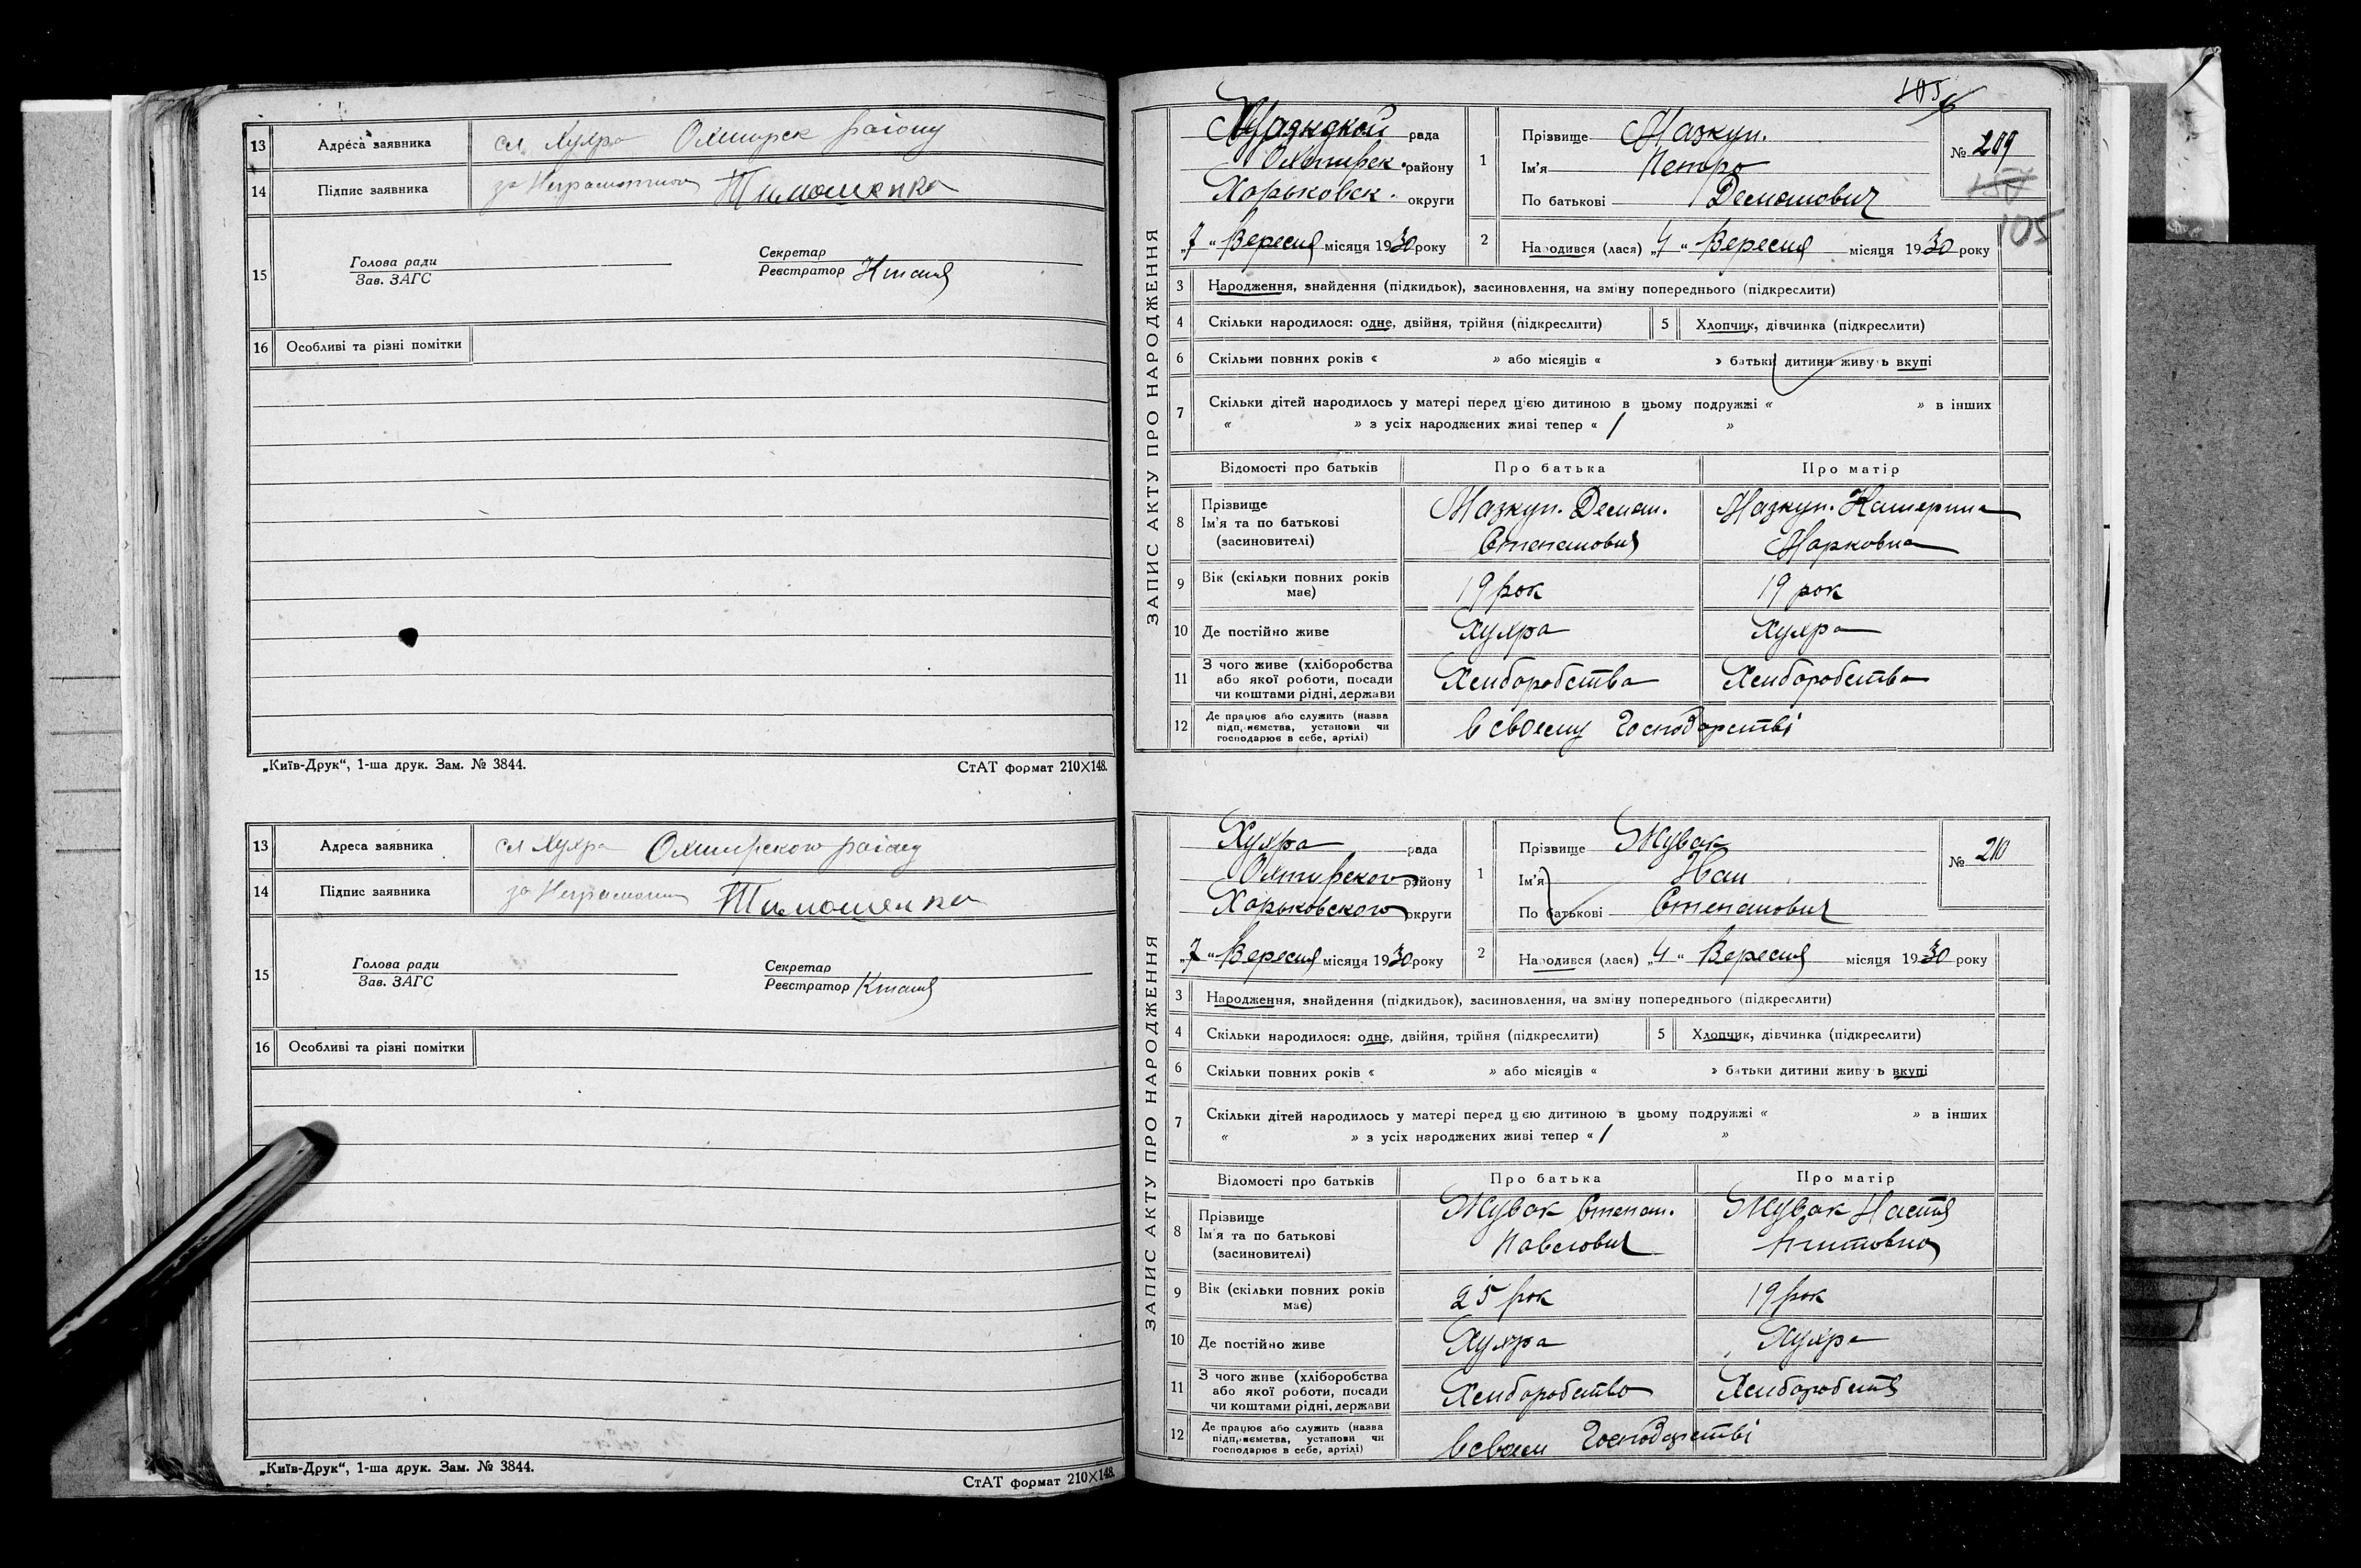 13 Адреса заявника сл. Хухра Охтирск району
14 Підпис заявника за Неграмотного Тимошенко
15 Голова ради
Зав. ЗАГС
Секретар
Реєстратор
16 Особливі та різні помітки
„Київ-Друк“, 1-ша друк. Зам. № 3844.
СтАТ формат 210×148.
13 Адреса заявника сл Хухра Охтирского району
14 Підпис заявника за Тимошенко
15 Голова ради
Зав. ЗАГС
Секретар
Реєстратор
16 Особливі та різні помітки
„Київ-Друк“, 1-ша друк. Зам. № 3844.
СтАТ формат 210×148.
105
ЗАПИС АКТУ ПРО НАРОДЖЕННЯ
рада
Охтирск. району
Харьковск. округи
„7“ Вересня місяця 1930 року
1 Прізвище Мазкун.
Ім'я Петро
По батькові
№ 209
105
2 Народився (лася) „4“ Вересня місяця 1930 року
3 Народження, знайдення (підкидьок), засиновлення, на зміну попереднього (підкреслити)
4 Скільки народилося: одне, двійня, трійня (підкреслити)
5 Хлопчик, дівчинка (підкреслити)
6 Скільки повних років « » або місяців « » батьки дитини живуть вкупі
7 Скільки дітей народилось у матері перед цією дитиною в цьому подружжі « » в інших
« » з усіх народжених живі тепер « / »
Відомості про батьків Про батька Про матір
8 Прізвище
Ім'я та по батькові
(засиновителі)
Мазкун.
Степанович
Мазкун. Катерина
Марковна
9 Вік (скільки повних років має) 19 рок 19 рок
10 Де постійно живе Хухра Хухра
11 З чого живе (хліборобства
або якої роботи, посади
чи коштами рідні, держави
Хлиборобства Хлиборобства
12 Де працює або служить (назва
підприємства, установи чи
господарює в себе, артілі)
в своему Господарстві
ЗАПИС АКТУ ПРО НАРОДЖЕННЯ
Хухра рада
Охтирского району
Харьковского округи
„7“ Вересня місяця 1930 року
1 Прізвище Жувак
Ім'я Иван
По батькові Степанович
№ 210
2 Народився (лася) „4“ Вересня місяця 1930 року
3 Народження, знайдення (підкидьок), засиновлення, на зміну попереднього (підкреслити)
4 Скільки народилося: одне, двійня, трійня (підкреслити)
5 Хлопчик, дівчинка (підкреслити)
6 Скільки повних років « » або місяців « » батьки дитини живуть вкупі
7 Скільки дітей народилось у матері перед цією дитиною в цьому подружжі « » в інших
« » з усіх народжених живі тепер « / »
Відомості про батьків Про батька Про матір
8 Прізвище
Ім'я та по батькові
(засиновителі)
Жувак Степан.
Павлович
Жувак Настя
9 Вік (скільки повних років має) 25 рок 19 рок
10 Де постійно живе Хухра Хухра
11 З чого живе (хліборобства
або якої роботи, посади
чи коштами рідні, держави
Хлиборобство
12 Де працює або служить (назва
підприємства, установи чи
господарює в себе, артілі)
в своем Господарстві